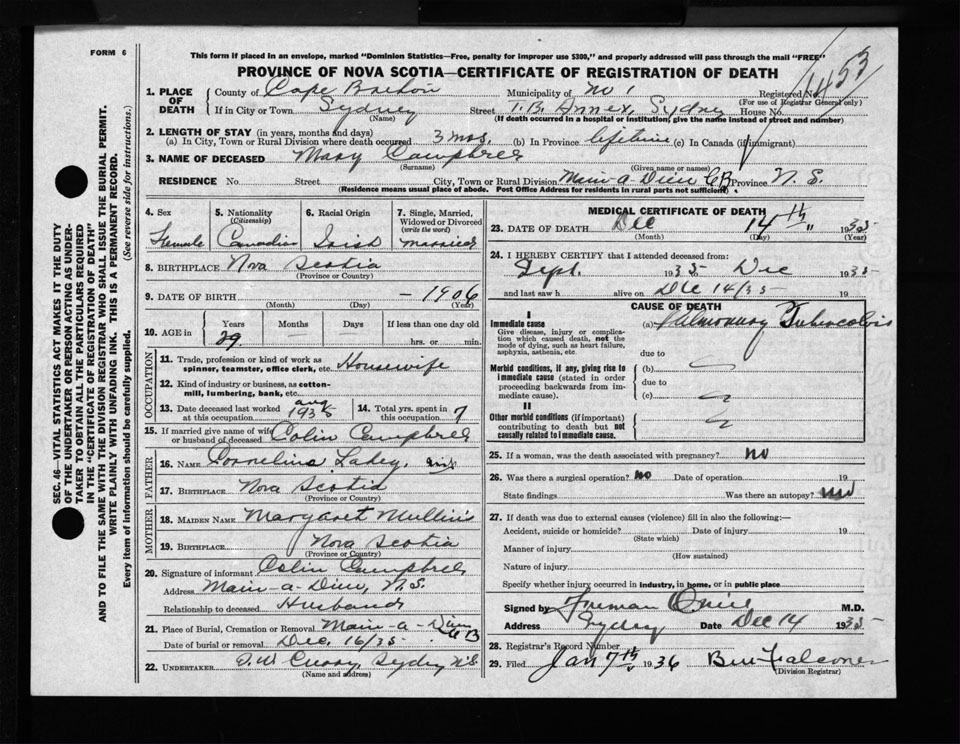 FORM 6
This form if placed in an envelope, marked "Dominion Statistics—Free, penalty for improper use $300," and properly addressed will pass through the mail "FREE"
PROVINCE OF NOVA SCOTIA—CERTIFICATE OF REGISTRATION OF DEATH
1453
1. PLACE OF DEATH
County of Cape Breton Municipality of No 1 Registered No.
(For use of Registrar General only)
If in City or Town Sydney (Name) Street T.B. Annex, Sydney House No.
(If death occurred in a hospital or institution, give the name instead of street and number)
2. LENGTH OF STAY (in years, months and days)
(a) In City, Town or Rural Division where death occurred 3 mos. (b) In Province lifetime (c) In Canada (if immigrant)
3. NAME OF DECEASED Mary Campbell
(Surname) (Given name or names)
RESIDENCE No. Street City, Town or Rural Division Main-a-Dieu CB Province N.S.
(Residence means usual place of abode. Post Office Address for residents in rural parts not sufficient)
4. Sex Female
5. Nationality (Citizenship) Canadian
6. Racial Origin Irish
7. Single, Married, Widowed or Divorced (write the word) Married
8. BIRTHPLACE Nova Scotia
(Province or Country)
9. DATE OF BIRTH – 1906
(Month) (Day) (Year)
10. AGE in Years 29 Months Days If less than one day old hrs. or min.
OCCUPATION
11. Trade, profession or kind of work as spinner, teamster, office clerk, etc. Housewife
12. Kind of industry or business, as cotton-mill, lumbering, bank, etc.
13. Date deceased last worked at this occupation Aug 1935
14. Total yrs. spent in this occupation 7
15. If married give name of wife or husband of deceased Colin Campbell
FATHER
16. NAME Cornelius Lahey, Irish
17. BIRTHPLACE Nova Scotia
(Province or Country)
MOTHER
18. MAIDEN NAME Margaret Mullins
19. BIRTHPLACE Nova Scotia
(Province or Country)
20. Signature of informant Colin Campbell
Address Main-a-Dieu, N.S.
Relationship to deceased Husband
21. Place of Burial, Cremation or Removal Main-a-Dieu CB
Date of burial or removal Dec. 16/35
22. UNDERTAKER Curry, Sydney N.S
(Name and address)
MEDICAL CERTIFICATE OF DEATH
23. DATE OF DEATH Dec 14th 1935
(Month) (Day) (Year)
24. I HEREBY CERTIFY that I attended deceased from:
Sept. 1935 Dec 1935
and last saw h alive on Dec 14/35 19
CAUSE OF DEATH
I
Immediate cause
Give disease, injury or complication which caused death, not the mode of dying, such as heart failure, asphyxia, asthenia, etc.
(a) Pulmonary Tuberculosis
due to
Morbid conditions, if any, giving rise to immediate cause (stated in order proceeding backwards from immediate cause).
(b)
due to
(c)
II
Other morbid conditions (if important) contributing to death but not causally related to immediate cause.
25. If a woman, was the death associated with pregnancy? no
26. Was there a surgical operation? no Date of operation 19
State findings Was there an autopsy? no
27. If death was due to external causes (violence) fill in also the following:—
Accident, suicide or homicide? Date of injury 19
(State which)
Manner of injury
(How sustained)
Nature of injury
Specify whether injury occurred in industry, in home, or in public place
Signed by Freeman O'Neil M.D.
Address Sydney Date Dec 14 1935
28. Registrar's Record Number
29. Filed Jan 7th 1936 Falconer
(Division Registrar)
SEC. 46—VITAL STATISTICS ACT MAKES IT THE DUTY
OF THE UNDERTAKER OR PERSON ACTING AS UNDER-
TAKER TO OBTAIN ALL THE PARTICULARS REQUIRED
IN THE "CERTIFICATE OF REGISTRATION OF DEATH"
AND TO FILE THE SAME WITH THE DIVISION REGISTRAR WHO SHALL ISSUE THE BURIAL PERMIT.
WRITE PLAINLY WITH UNFADING INK. THIS IS A PERMANENT RECORD.
Every item of information should be carefully supplied. (See reverse side for instructions.)